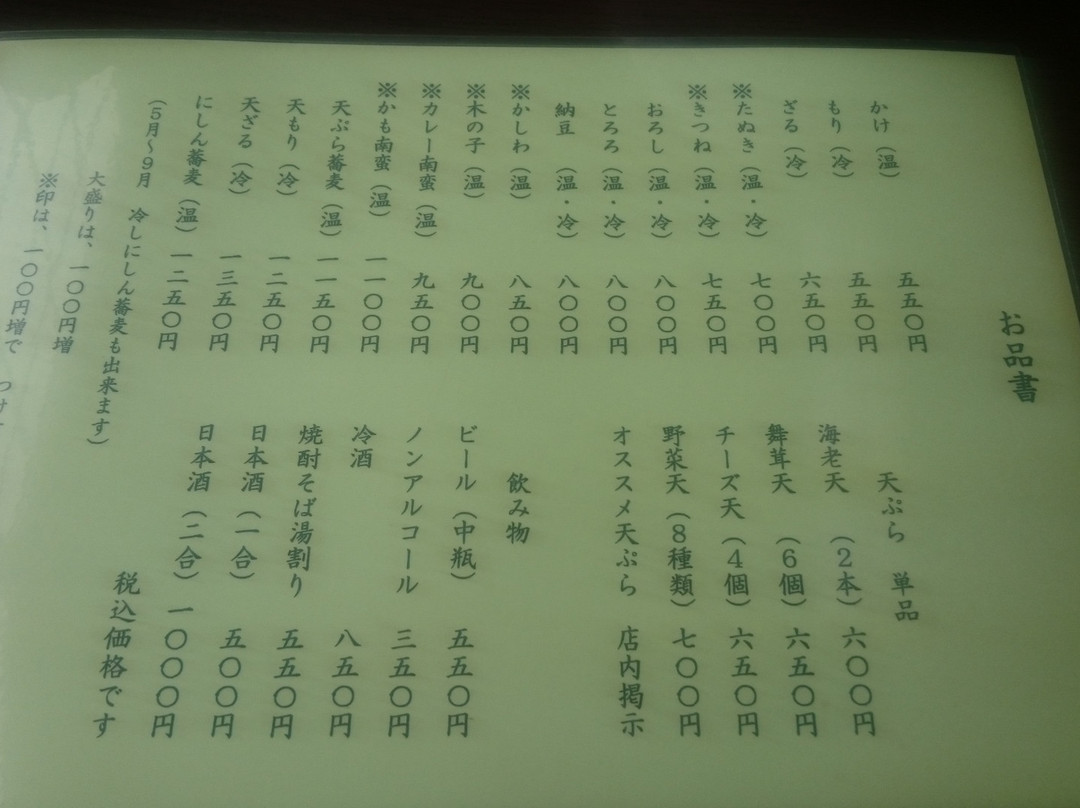 お品書
かけ（温） 五五〇円
もり（冷） 五五〇円
ざる（冷） 六五〇円
※たぬき（温・冷） 七〇〇円
※きつね（温・冷） 七五〇円
おろし（温・冷） 八〇〇円
とろろ（温・冷） 八〇〇円
納豆（温・冷） 八〇〇円
※かしわ（温） 八五〇円
※木の子（温） 九〇〇円
※カレー南蛮（温） 九五〇円
※かも南蛮（温） 一一〇〇円
天ぷら蕎麦（温） 一一五〇円
天もり（冷） 一二五〇円
天ざる（冷） 一三五〇円
にしん蕎麦（温） 一二五〇円
（５月～９月 冷しにしん蕎麦も出来ます）
大盛りは、一〇〇円増
※印は、一〇〇円増で
天ぷら 単品
海老天（２本） 六〇〇円
舞茸天（６個） 六五〇円
チーズ天（４個） 六五〇円
野菜天（８種類） 七〇〇円
オススメ天ぷら 店内掲示
飲み物
ビール（中瓶） 五五〇円
ノンアルコール 三五〇円
冷酒 八五〇円
焼酎そば湯割り 五五〇円
日本酒（一合） 五〇〇円
日本酒（二合） 一〇〇〇円
税込価格です